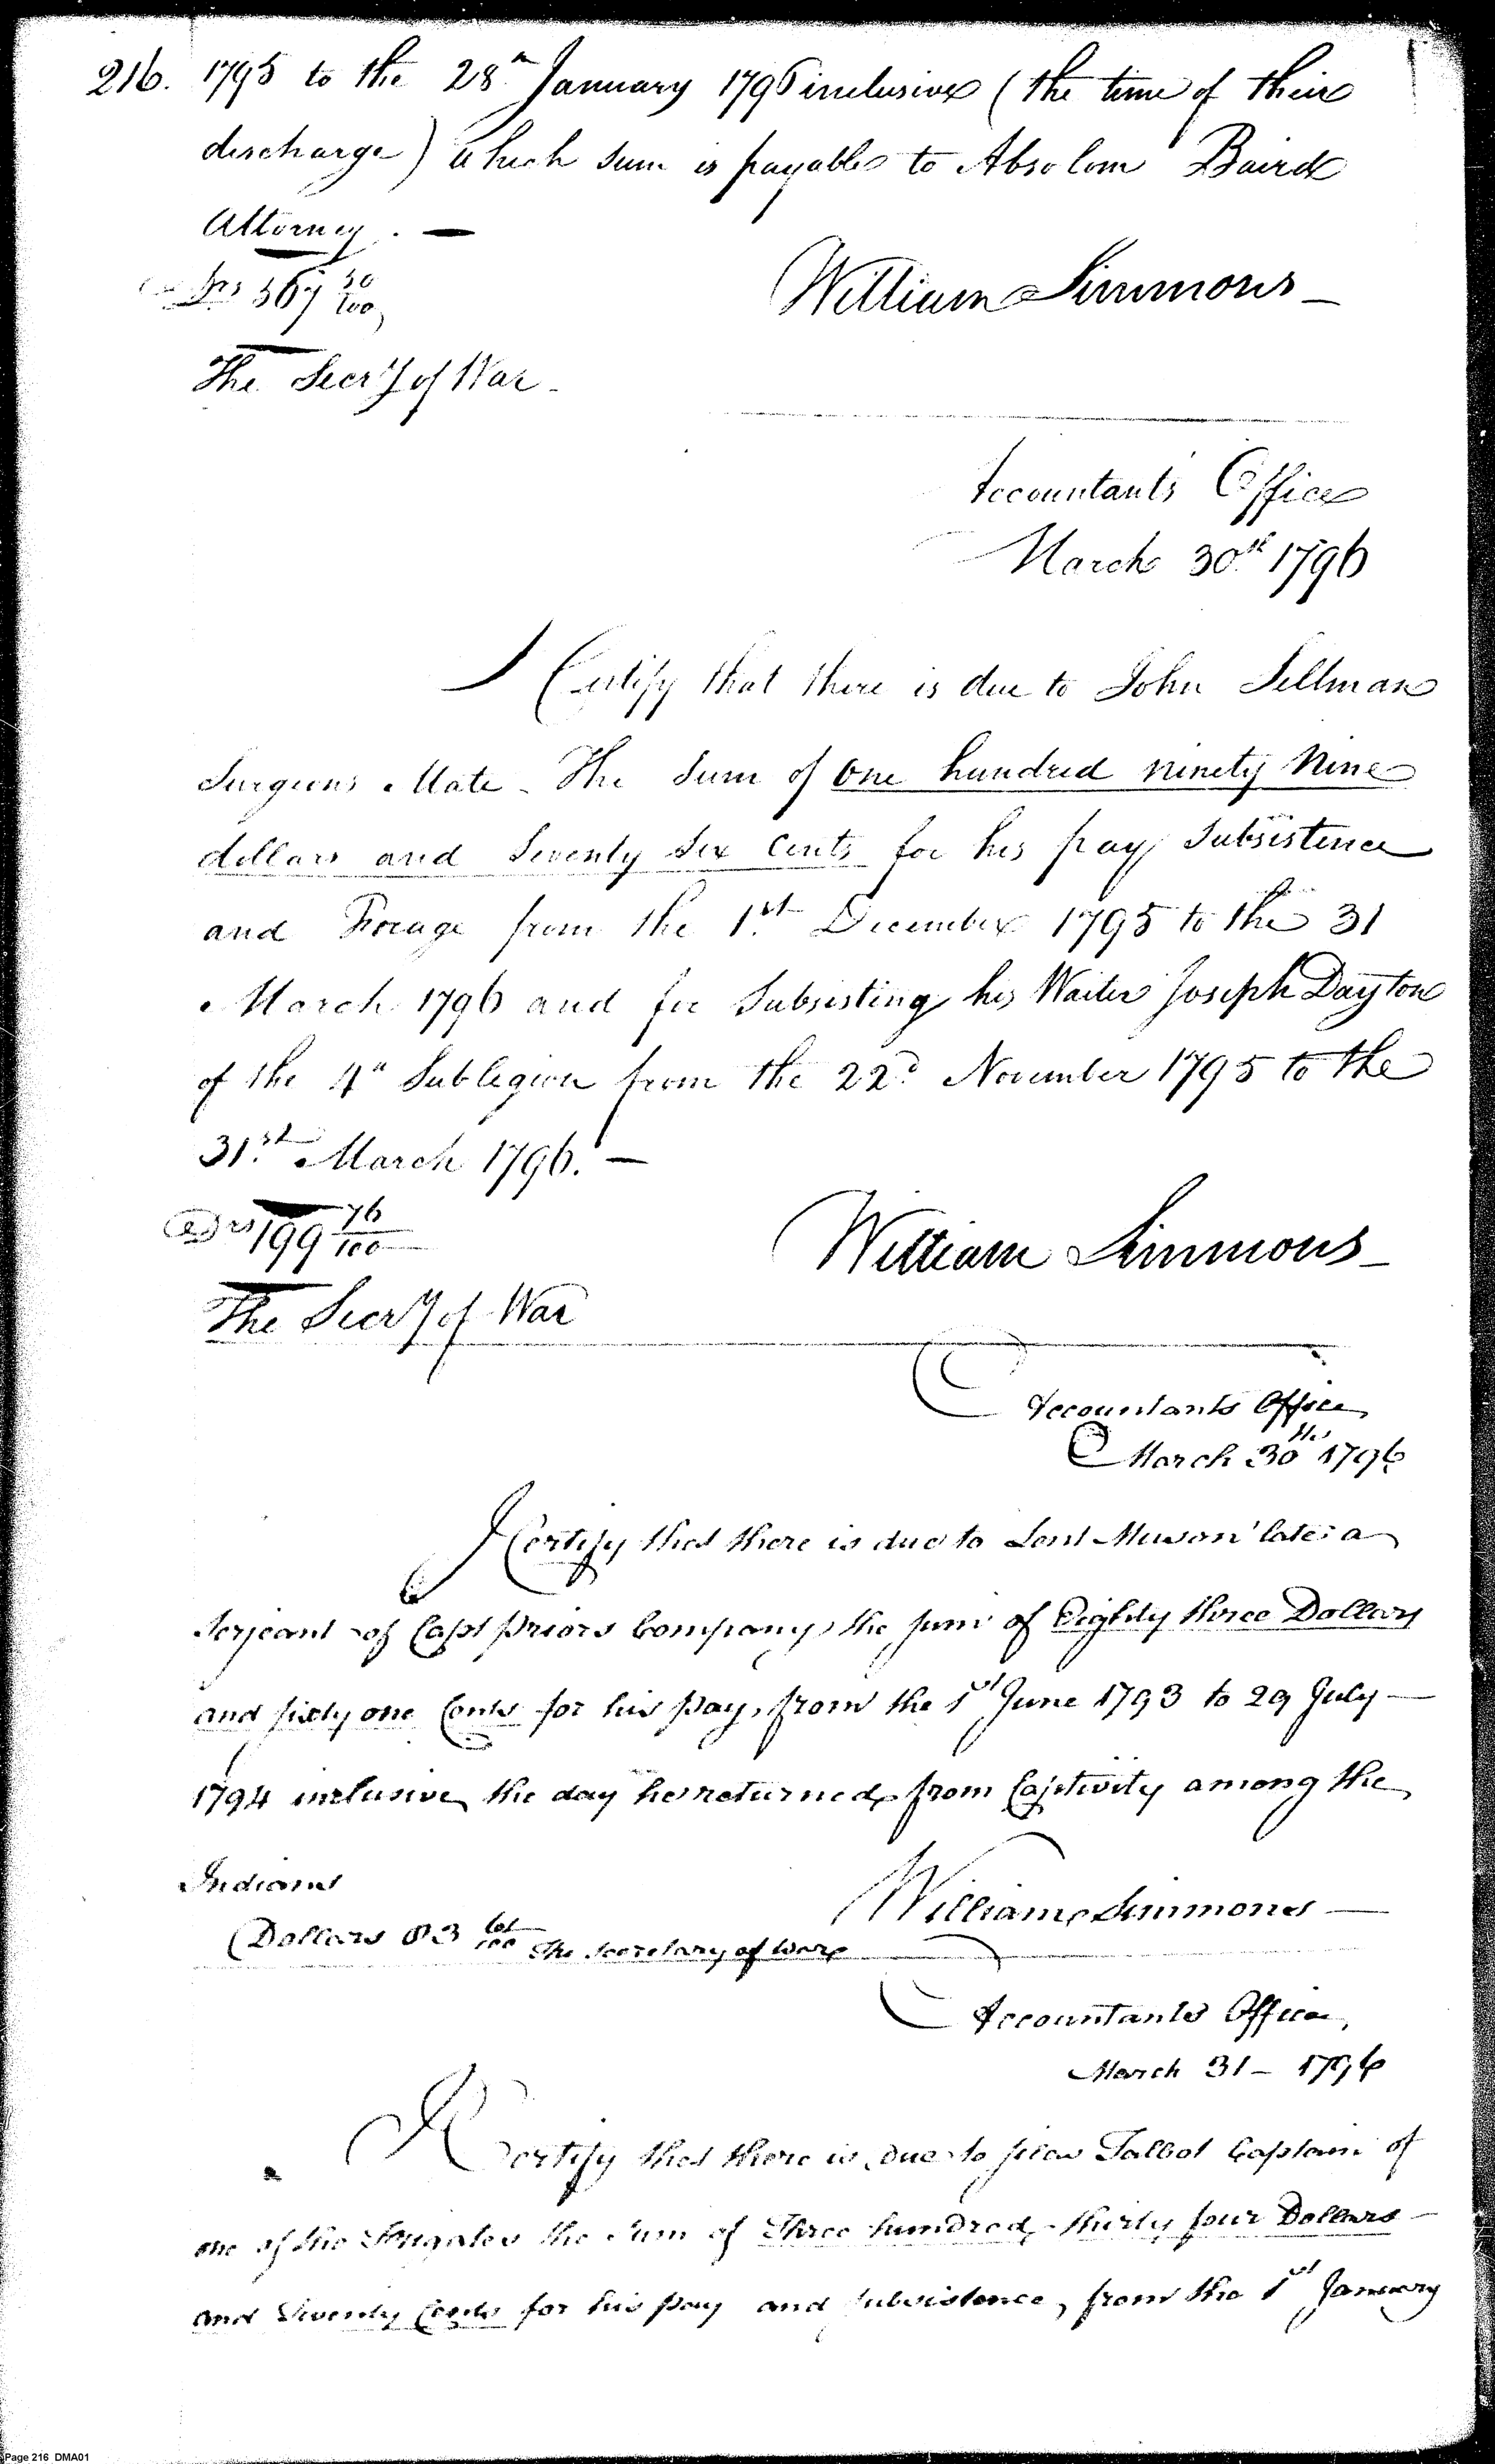 216. 1795 to the 28th January 1796 inclusive (the time of their
discharge) which sum is payable to Absolom Baird
Attorney. —
Drs 567 50/100
William Simmons —
The Secry of War —
Accountants Office
March 30th 1796
I Certify that there is due to John Sellman
Surgeons Mate. The Sum of One hundred ninety Nine
dollars and Seventy Six Cents for his pay Subsistence
and Forage from the 1st December 1795 to the 31
March 1796 and for Subsisting his Waiter Joseph Dayton
of the 4th Sublegion from the 22d November 1795 to the
31st March 1796. —
Drs 199 76/100
William Simmons —
The Secry of War
Accountants Office
March 30th 1796
I Certify that there is due to late a
Serjeant of Capt Priors Company, the sum of Eighty three Dollars
and sixty one Cents for his pay, from the 1st June 1793 to 29 July —
1794 inclusive, the day he returned from Captivity among the
Indians
William Simmons —
Dollars 83 61/100 The Secretary of War
Accountants Office,
March 31 — 1796
I Certify that there is due to Silas Talbot Captain of
one of the Frigates the Sum of Three hundred, thirty four Dollars —
and Seventy Cents for his pay and subsistence, from the 1st January
Page 216 DMA01